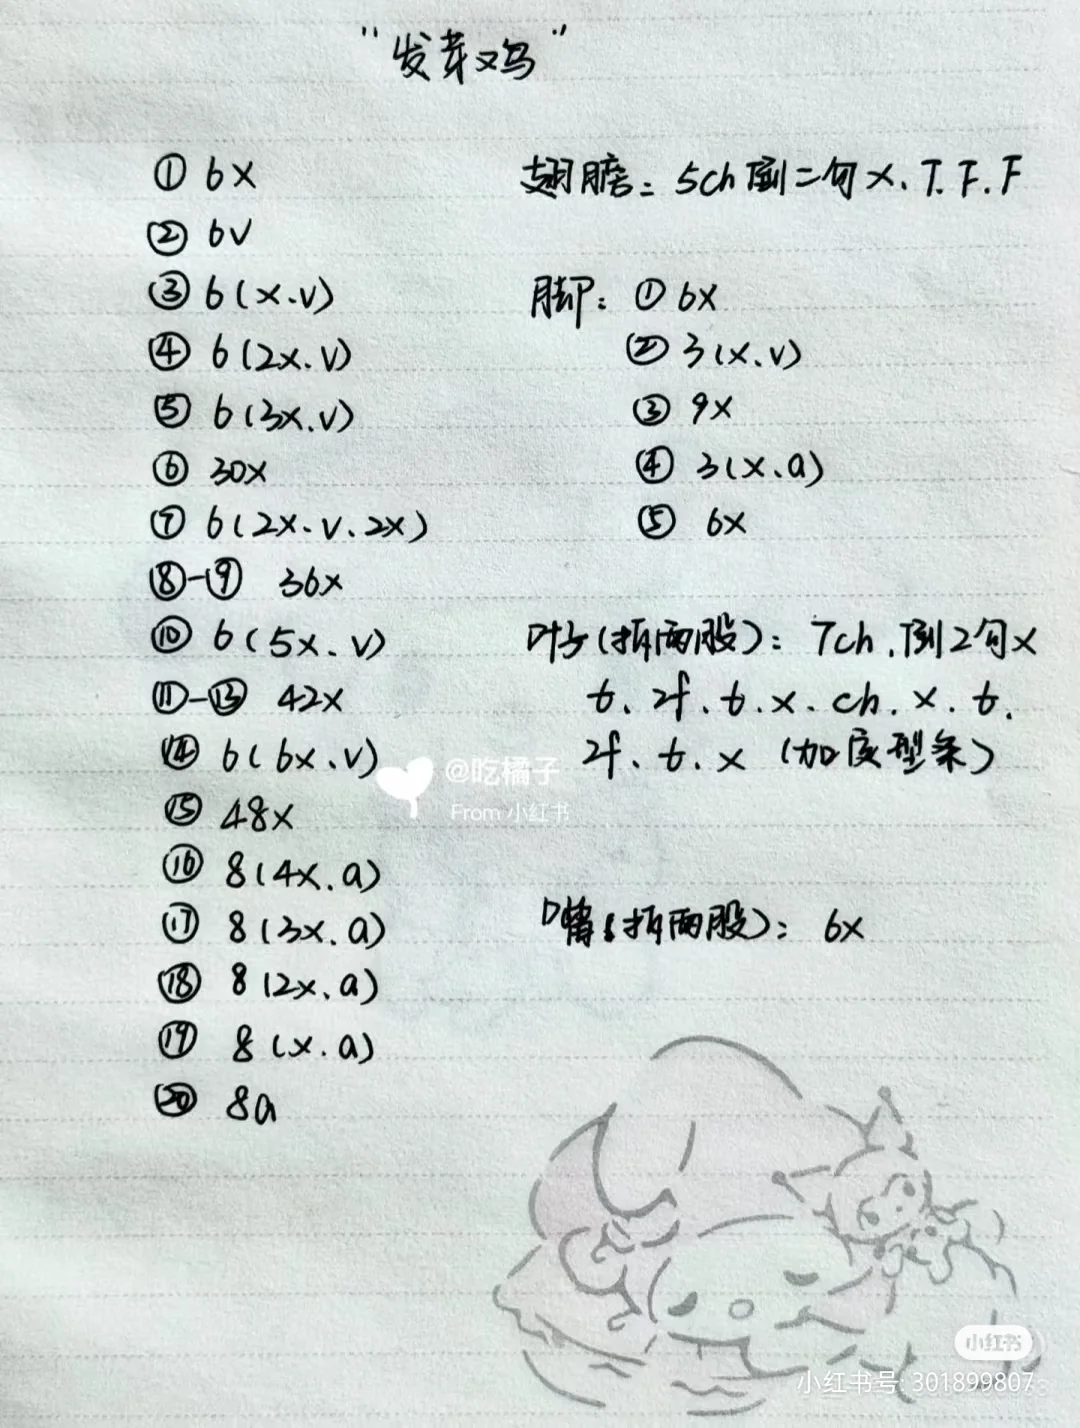 "发芽鸡"
① 6X
② 6V
③ 6(X.V)
④ 6(2X.V)
⑤ 6(3X.V)
⑥ 30X
⑦ 6(2X.V.2X)
⑧-⑨ 36X
⑩ 6(5X.V)
⑪-⑬ 42X
⑭ 6(6X.V)
⑮ 48X
⑯ 8(4X.a)
⑰ 8(3X.a)
⑱ 8(2X.a)
⑲ 8(X.a)
⑳ 8a
翅膀: 5ch 倒二勾X.T.F.F
脚: ① 6X
② 3(X.V)
③ 9X
④ 3(X.a)
⑤ 6X
叶子(拆两股): 7ch.倒2勾X
t.2f.t.x.ch.x.t.
2f.t.x (加定型条)
嘴(拆两股): 6X
@吃橘子
From 小红书
小红书
小红书号: 301899807